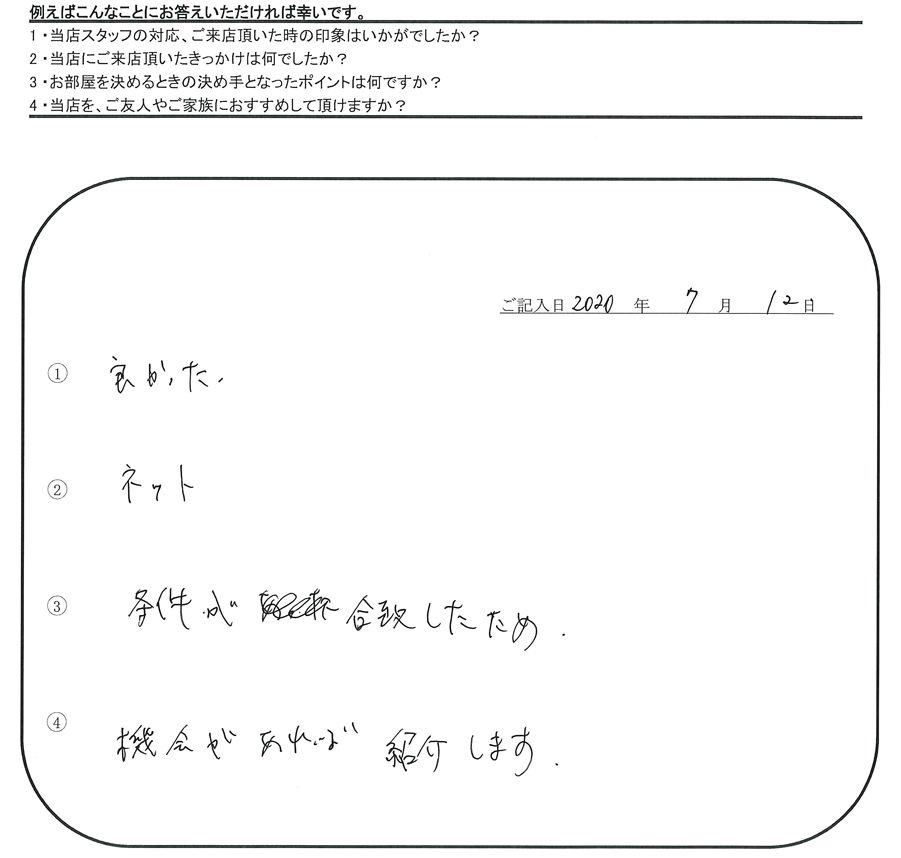 例えばこんなことにお答えいただければ幸いです。
1・当店スタッフの対応、ご来店頂いた時の印象はいかがでしたか？
2・当店にご来店頂いたきっかけは何でしたか？
3・お部屋を決めるときの決め手となったポイントは何ですか？
4・当店を、ご友人やご家族におすすめして頂けますか？
ご記入日 2020 年 7 月 12 日
① 良かった.
② ネット
③ 条件が 合致したため.
④ 機会があれば 紹介します.